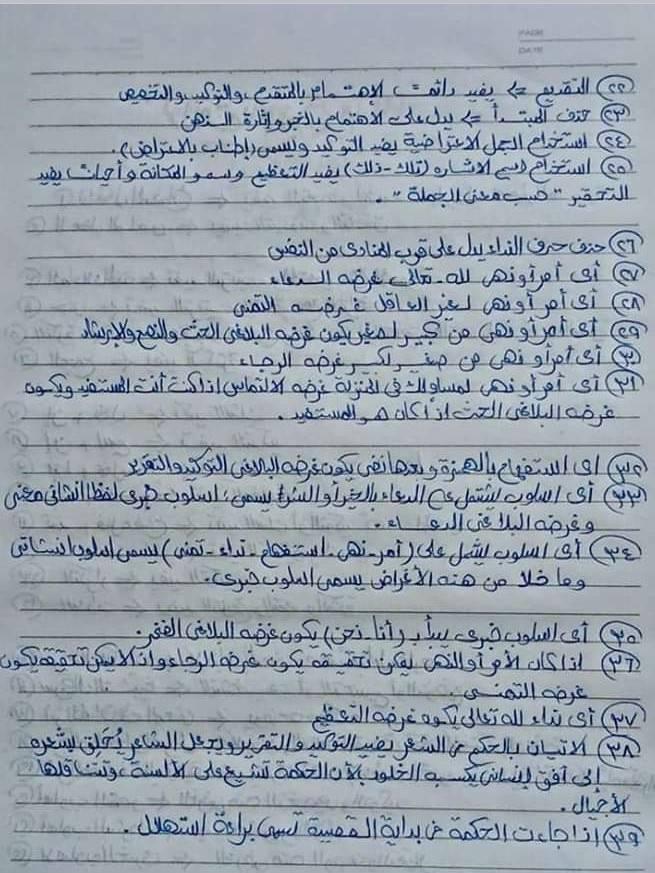 PAGE
DATE
(٢٢) التقديم => يفيد دائمًا الاهتمام بالمتقدم والتوكيد والتخصيص
(٢٣) حذف المبتدأ => يدل على الاهتمام بالخبر وإثارة الذهن
(٢٤) استخدام الجمل الاعتراضية يفيد التوكيد ويسمى (إطناب بالاعتراض).
(٢٥) استخدام اسم الاشاره (تلك - ذلك) يفيد التعظيم وسمو المكانة وأحيانًا يفيد
التحقير "حسب معنى الجملة".
(٢٦) حذف حرف النداء يدل على قرب المنادى من النفس
(٢٧) أى أمر أو نهى لله - تعالى غرضه الدعاء
(٢٨) أى أمر أو نهى لغير العاقل غرضه التمنى
(٢٩) أى أمر أو نهى من كبير لصغير يكون غرضه البلاغى الحث والنصح والإرشاد
(٣٠) أى أمر أو نهى من صغير لكبير غرضه الرجاء
(٣١) أى أمر أو نهى لمساو لك فى المنزلة غرضه الالتماس اذا كنت أنت المستفيد ويكون
غرضه البلاغى الحث اذا كان هو المستفيد.
(٣٢) اى استفهام بالهمزة وبعدها نفى يكون غرضه البلاغى التوكيد والتقرير
(٣٣) أى اسلوب يشتمل على الدعاء بالخير أو الشر يسمى، اسلوب خبرى لفظا انشائى معنى
وغرضه البلاغى الدعاء.
(٣٤) أى اسلوب يشمل على (أمر - نهى - استفهام - نداء - تمنى) يسمى اسلوب انشائى
وما خلا من هذه الأغراض يسمى اسلوب خبرى.
(٣٥) أى اسلوب خبرى يبدأ بـ (أنا - نحن) يكون غرضه البلاغى الفخر.
(٣٦) اذا كان الأمر أو النهى يمكن تحقيقه يكون غرضه الرجاء واذا لا يمكن تحقيقه يكون
غرضه التمنى
(٣٧) أى نداء لله تعالى يكون غرضه التعظيم
(٣٨) الاتيان بالحكم فى الشعر يفيد التوكيد والتقرير ويجعل الشاعر يُحَلق بشعره
إلى أفق إنسانى يكسبه الخلود لأن الحكمة تشيع على الألسنة وتتناقلها
الأجيال.
(٣٩) إذا جاءت الحكمة فى بداية القصيدة تسمى براعة استهلال.